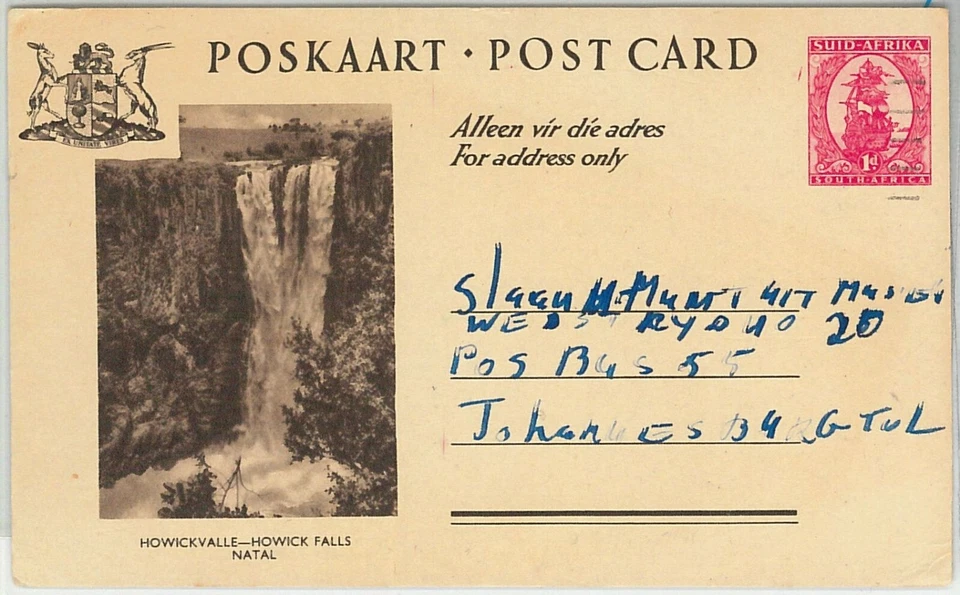 POSKAART · POST CARD
EX UNITATE VIRES
SUID-AFRIKA
1d
SOUTH-AFRICA
Alleen vir die adres
For address only
Slaan Munt uit
WEDSTRYD NO 20
Pos Bus 55
JohannESBURG TVL
HOWICKVALLE—HOWICK FALLS
NATAL